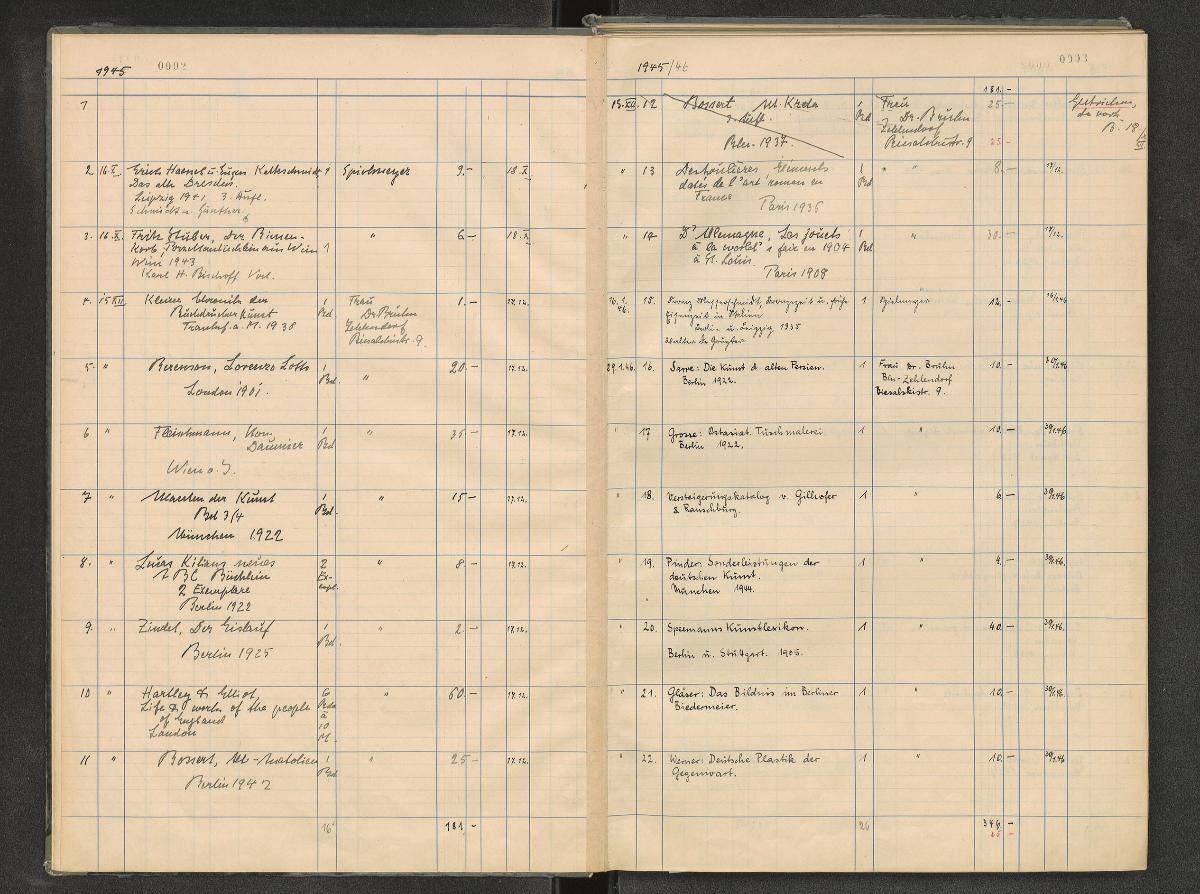 1945 0002
1
2 16.X. Erich Haenel u. Eugen Kalkschmidt 1 Spielmeyer 9.- 18.X.
Das alte Dresden.
Leipzig 1941 3. Aufl.
Schmidt u. Günther
3. 16.X. Fritz Huber, Der Bienen- " 6.- 18.X.
Korb, Porzellanbüchlein aus Wien 1
Wien, 1943
Karl H. Bischoff Verl.
4. 15.XII. Kleine Chronik der 1 Frau 1.- 17.12.
Buchdrucker Kunst Bd Dr Bruhn
Frankf. a. M. 1938 Zehlendorf
Biesalskistr. 9.
5. " Berenson, Lorenzo Lotto 1 20.- 17.12.
Bd. "
London 1901.
6 " Fleischmann, Hon. 1 " 35- 17.12.
Daumier Bd
Wien o. J.
7 " Wunder der Kunst 1 " 15- 17.12.
Bd 3/4 Bd.
München 1922
8. " Lucas Kilians neues 2 " 8- 17.12.
ABC Büchlein Ex-
2 Exemplare empl.
Berlin 1922
9. " Zindel, Der Eislauf 1 " 2.- 17.12.
Bd.
Berlin 1925
10 " Hartley & Elliot, 6 " 60.- 17.12.
Life & works of the people Bde
of England à
London 10
M.
11 " Bossert, Alt-Anatolien 1 " 25- 17.12.
Bd
Berlin 1942
16 181.-
1945/46 0003
181.-
15.XII. 12 Bossert Alt. Kreta 1 Frau 25- Gestrichen,
3. Aufl. Bd Dr. Bruhn
Bln. 1937 Zehlendorf
Biesalskistr. 9 25-
" 13 Deshoulières, Eléments 1 " " 8.- 17/12.
datés de l'art roman en Bd
France
Paris 1936
" 14 D'Allemagne, Les jouets 1 " 30.- 17/12.
à la world's fair en 1904 Bd
à St. Louis.
Paris 1908
16.1. 15. Franz Messerschmidt, Bronzezeit u. frühe 1 Spielmeyer 12.- 16/1.46
46. Eisenzeit in Italien
Berlin u. Leipzig 1935
Walter De Gruyter
29.1.46. 16. Sarre: Die Kunst d. alten Persien. 1 Frau Dr. Bruhn 10.- 30/1.46
Berlin 1922. Bln-Zehlendorf
Biesalskistr. 9.
" 17 Grosse: Ostasiat. Tuschmalerei 1 " 10.- 30/1.46.
Berlin 1922.
" 18. Versteigerungskatalog v. Gilhofer 1 " 6.- 30/1.46
& Ranschburg.
" 19. Pinder: Sonderleistungen der 1 " 4.- 30/1.46.
deutschen Kunst.
München 1944.
" 20. Speemanns Kunstlexikon. 1 " 40.- 30/1.46.
Berlin u. Stuttgart. 1905.
" 21. Gläser: Das Bildnis im Berliner 1 " 10.- 30/1.46.
Biedermeier.
" 22. Werner: Deutsche Plastik der 1 " 10.- 30/1.46
Gegenwart.
26 346.-
25 -